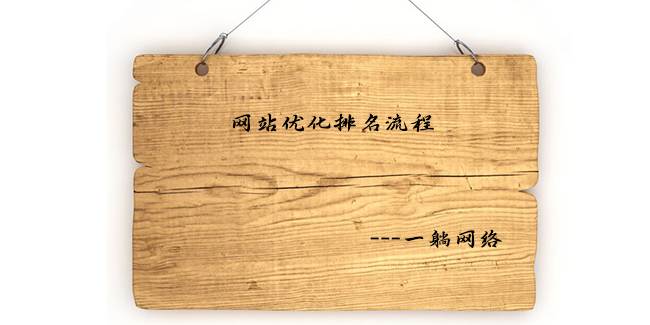 网站优化排名流程
---一躺网络